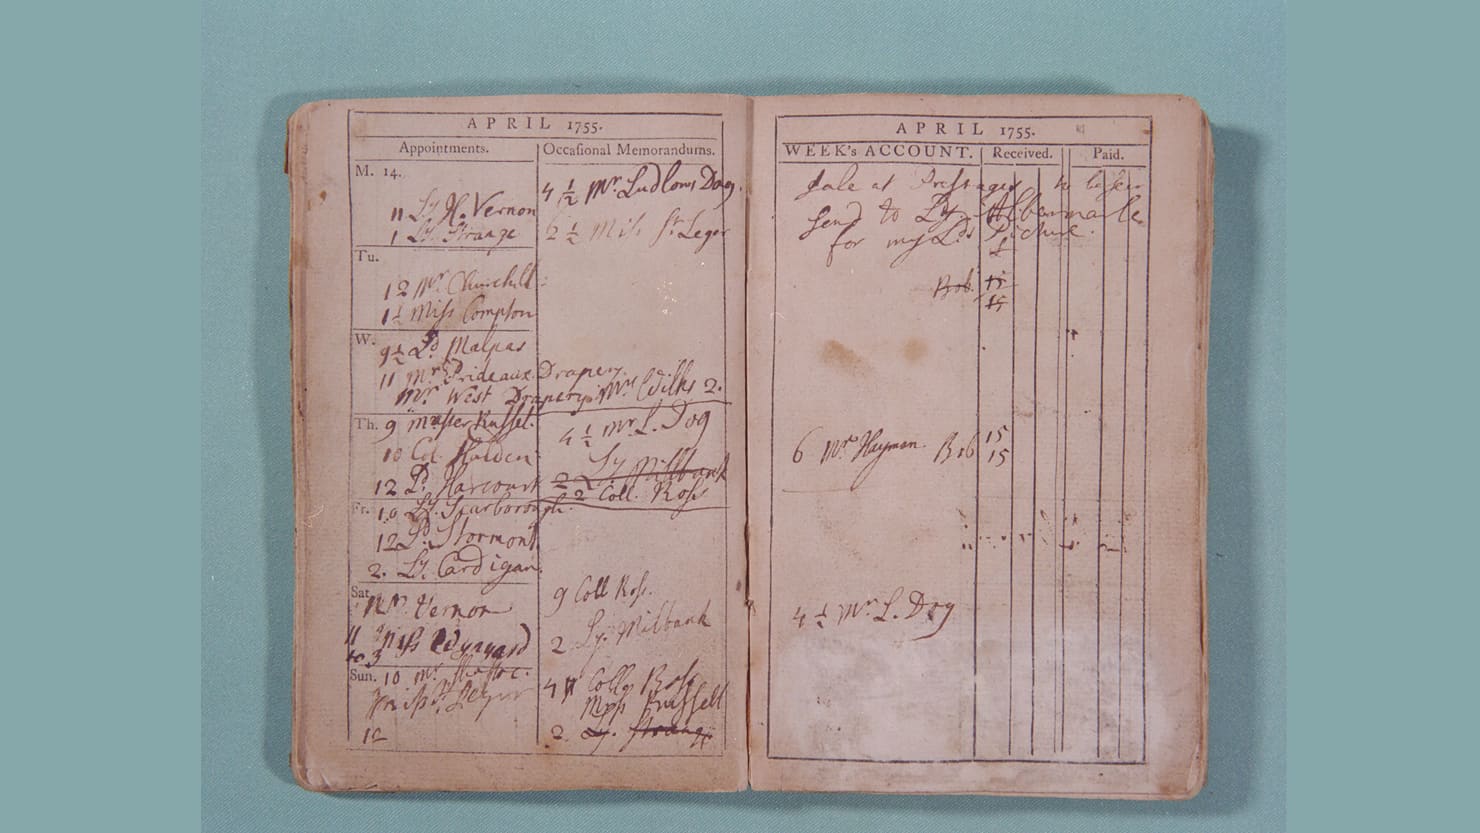 APRIL 1755.
Appointments.
M. 14.
11 Ly. H. Vernon
1 Ly. Strange
Tu.
12 Mr. Churchill
1½ Miss Compton
W.
9½ Ld. Malpas
11 Mr. Prideaux. Drapery.
Mr. West Drapery. Mrs Wilks 2.
Th. 9 Master Russel.
10 Col. Halden
12 Ld. Harcourt
Fr. 10 Ly. Scarborough.
12 Ld. Stormont
2. Ly. Cardigan.
Sat.
Vernon
11 Miss
to 3
Sun. 10 Mr.
Miss St. Leger
12
Occasional Memorandums.
4½ Mr. Ludlows Dog.
6½ Miss St. Leger
4½ Mr L. Dog
2 Ly. Milbank
2 Coll. Ross
9 Coll Ross.
2 Ly. Milbank
4 Coll Ross
Russell
2. Ly. Strange
APRIL 1755.
WEEK's ACCOUNT. Received. Paid.
Sale at Prestages to be seen
Send to Ly. Albermarle
for my Lds Picture.
Bob. 15
15
6 Mr Hayman. Bob 15
15
4½ Mr L. Dog